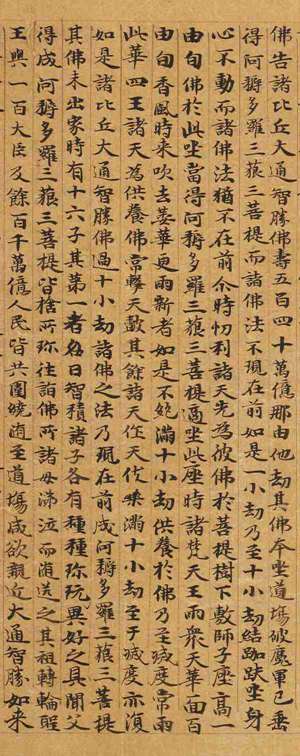 佛告諸比丘大通智勝佛壽五百四十萬億那由他劫其佛本坐道場破魔軍已垂
得阿耨多羅三藐三菩提而諸佛法不現在前如是一小劫乃至十小劫結跏趺坐身
心不動而諸佛法猶不在前尒時忉利諸天先為彼佛於菩提樹下敷師子座高一
由旬佛於此坐當得阿耨多羅三藐三菩提適坐此座時諸梵天王雨衆天華面百
由旬香風時来吹去萎華更雨新者如是不絶滿十小劫供養於佛乃至滅度常雨
此華四王諸天為供養佛常擊天鼓其餘諸天作天伎樂滿十小劫至于滅度亦復
如是諸比丘大通智勝佛過十小劫諸佛之法乃現在前成阿耨多羅三藐三菩提
其佛未出家時有十六子其第一者名曰智積諸子各有種種珎玩異好之具聞父
得成阿耨多羅三藐三菩提皆捨所珎往詣佛所諸母涕泣而隨送之其祖轉輪聖
王與一百大臣及餘百千萬億人民皆共圍繞隨至道場咸欲親近大通智勝如来